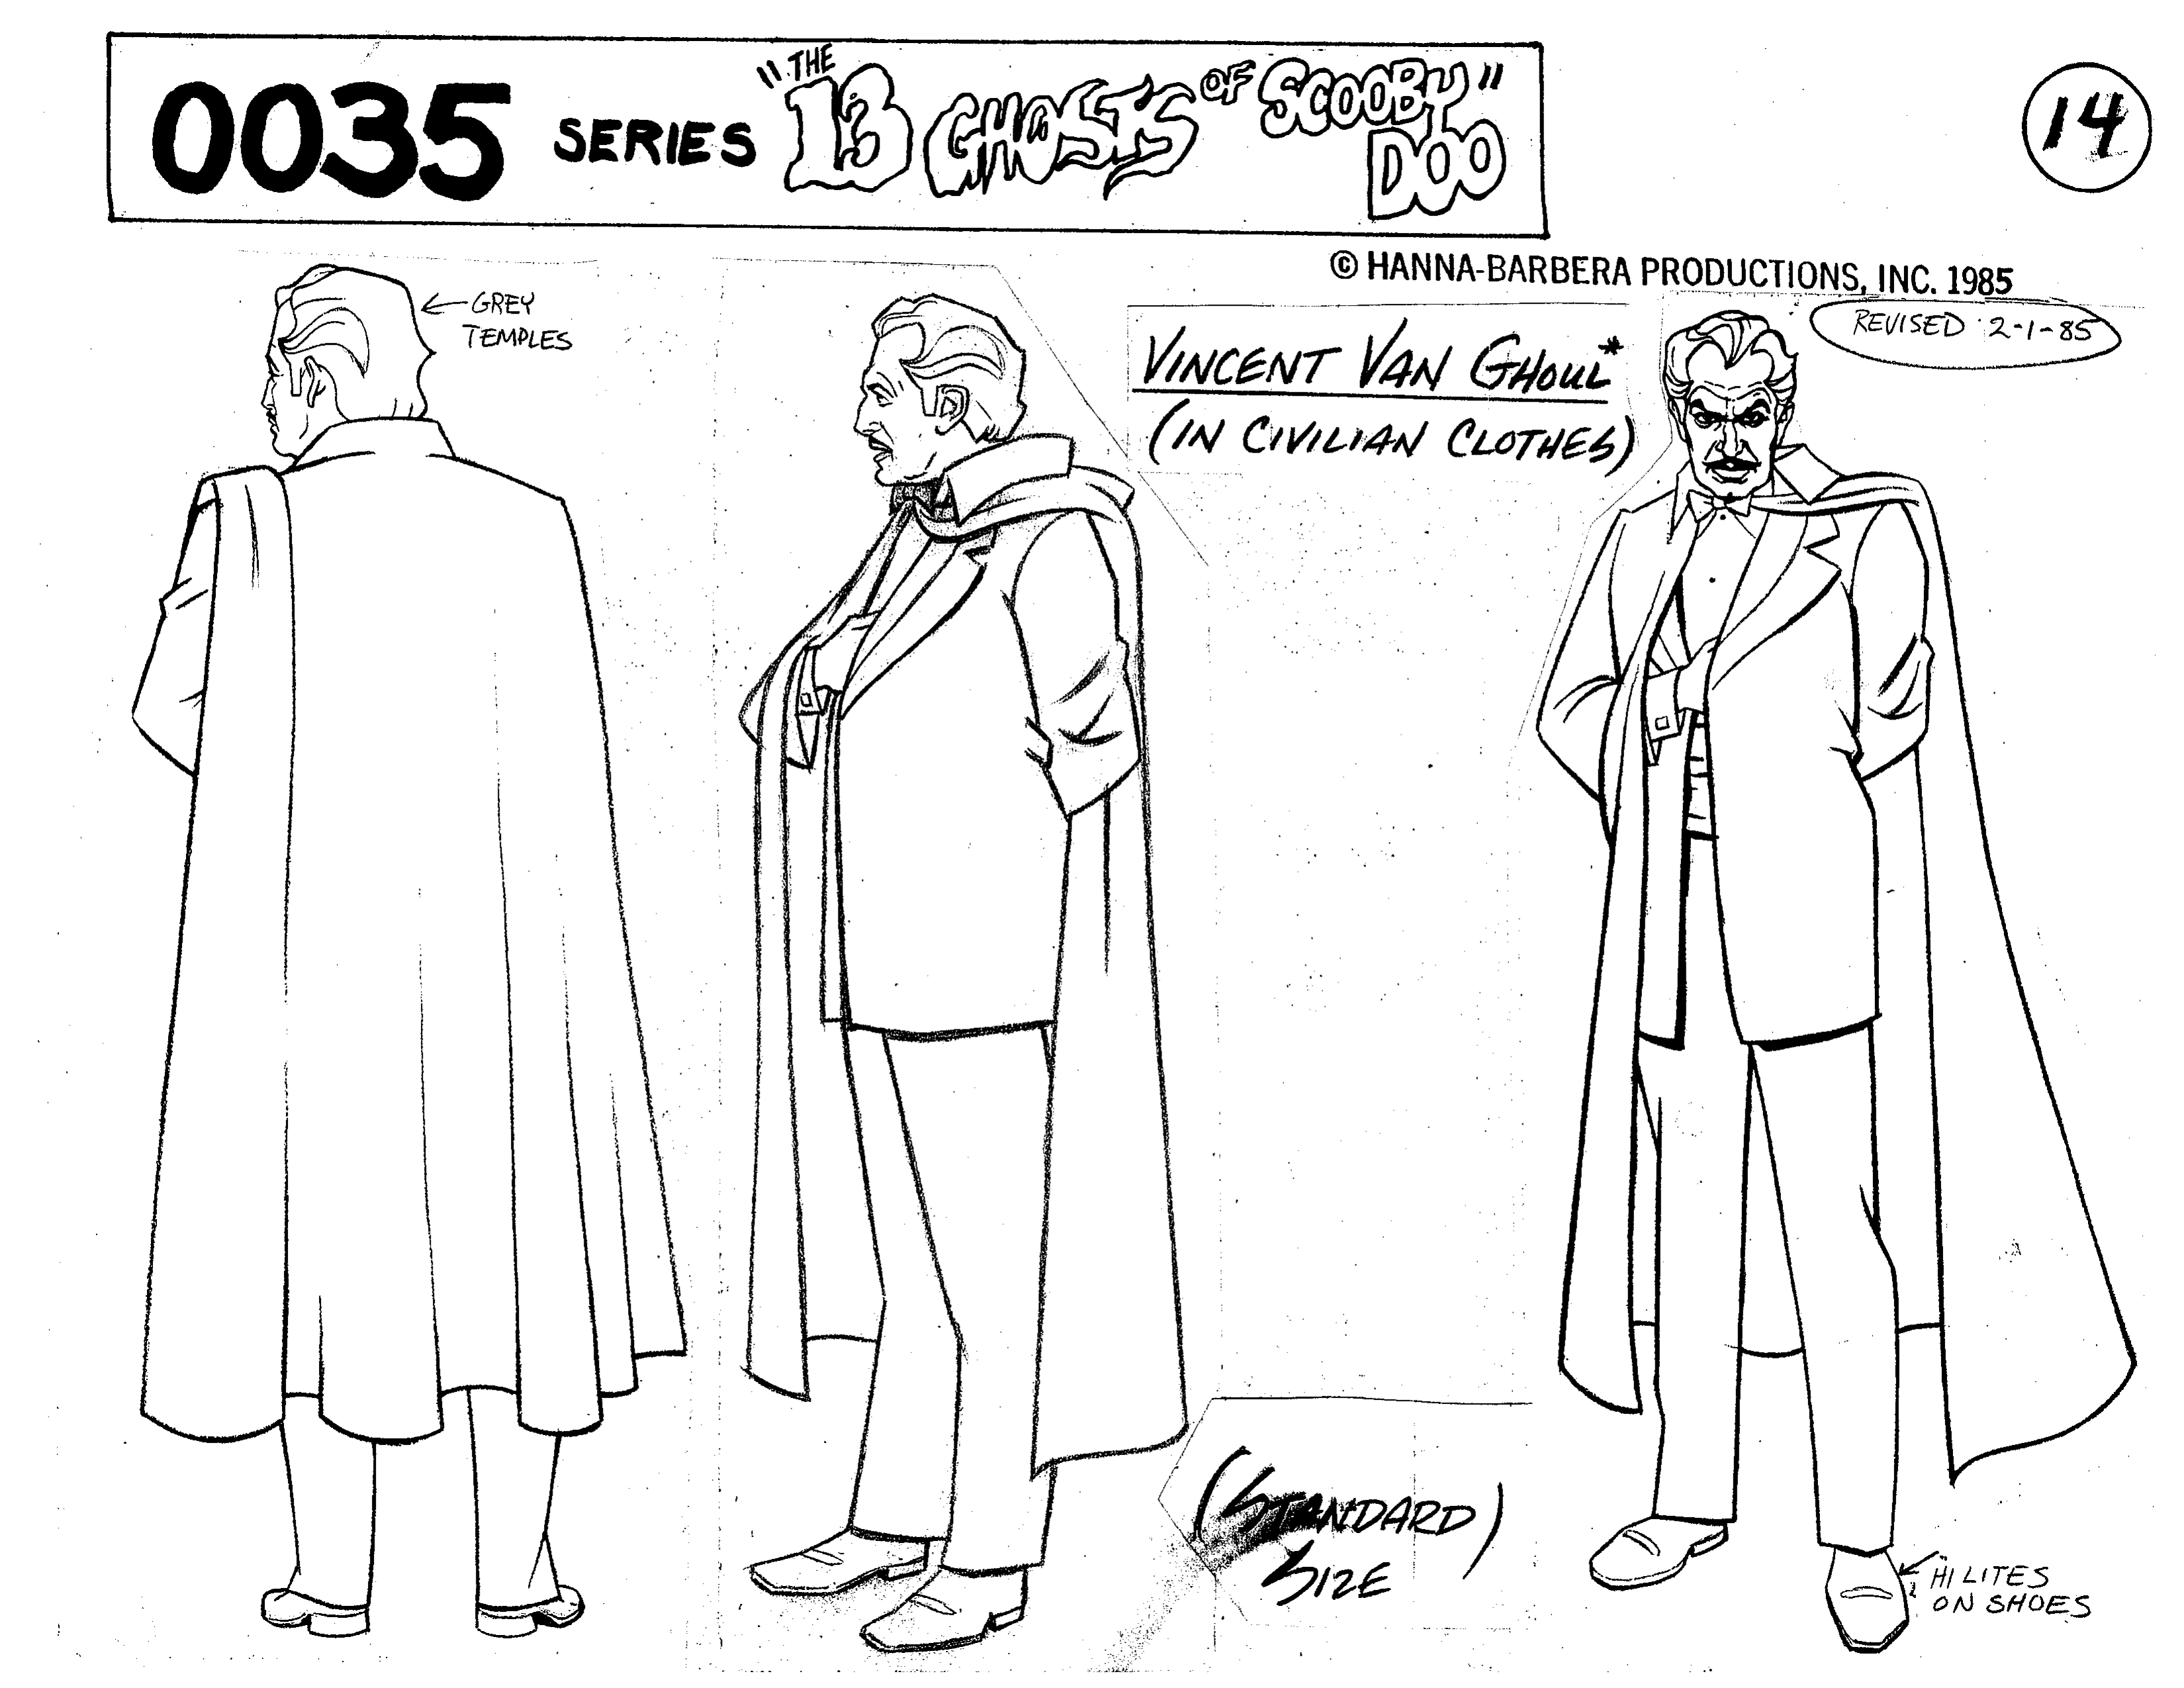 0035 SERIES "THE 13 GHOSTS OF SCOOBY DOO"
14
© HANNA-BARBERA PRODUCTIONS, INC. 1985
REVISED 2-1-85
GREY
TEMPLES
VINCENT VAN GHOUL*
(IN CIVILIAN CLOTHES)
(STANDARD)
SIZE
HILITES
ON SHOES